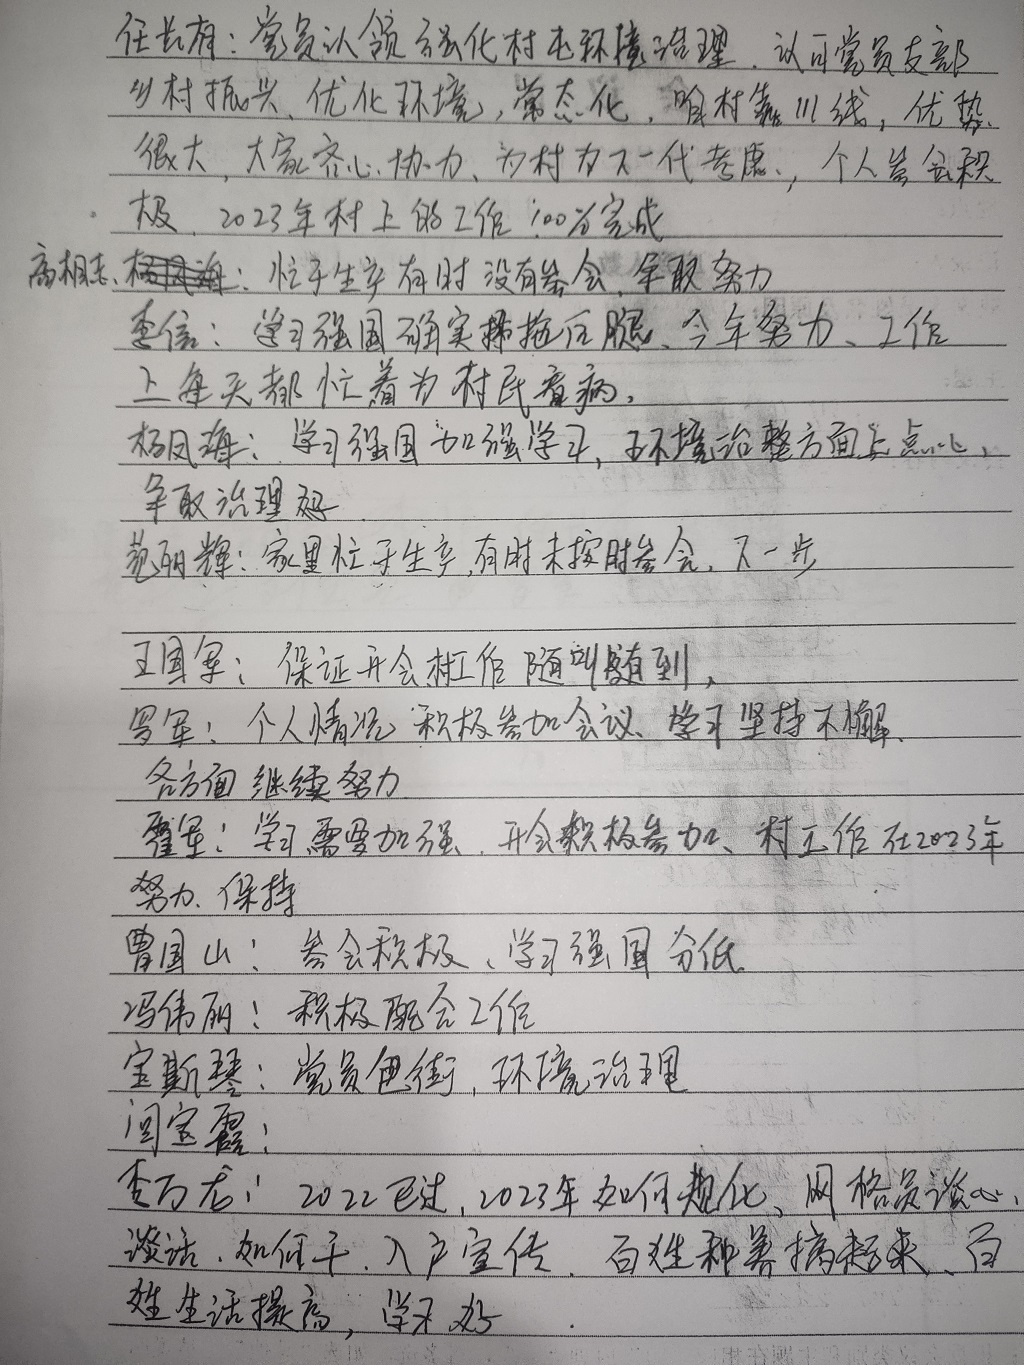 任长有：党员认领 强化村屯环境治理、认可党员支部
乡村振兴、优化环境，常态化，咱村靠川线，优势
很大，大家齐心协力、为村为下一代考虑、，个人参会积
极、2023年村上的工作100%完成
高相志、：忙于生产有时没有参会、争取努力
李信：学习强国确实拖后腿、今年努力、工作
上每天都忙着为村民看病，
杨凤海：学习强国加强学习，环境治整方面上点心，
争取治理好
范丽辉：家里忙于生产，有时未按时参会、下一步
王国军：保证开会村工作随叫随到，
罗军：个人情况 积极参加会议、学习坚持不懈、
各方面继续努力
霍军：学习需要加强、开会积极参加、村工作在2023年
努力、保持
曹国山：参会积极、学习强国分低
冯伟丽：积极配合工作
宝斯琴：党员包街，环境治理
闫宝霞：
李万龙：2022已过，2023年如何规化、网格员谈心、
谈话、如何干、入户宣传、百姓种养搞起来、百
姓生活提高，学习好